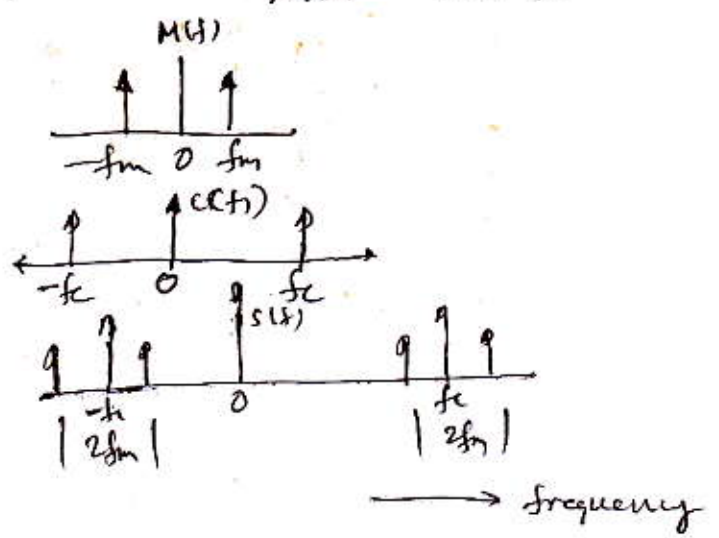 M(f)
-fm 0 fm
C(f)
-fc 0 fc
S(f)
-fc 0 fc
2fm 2fm
frequency